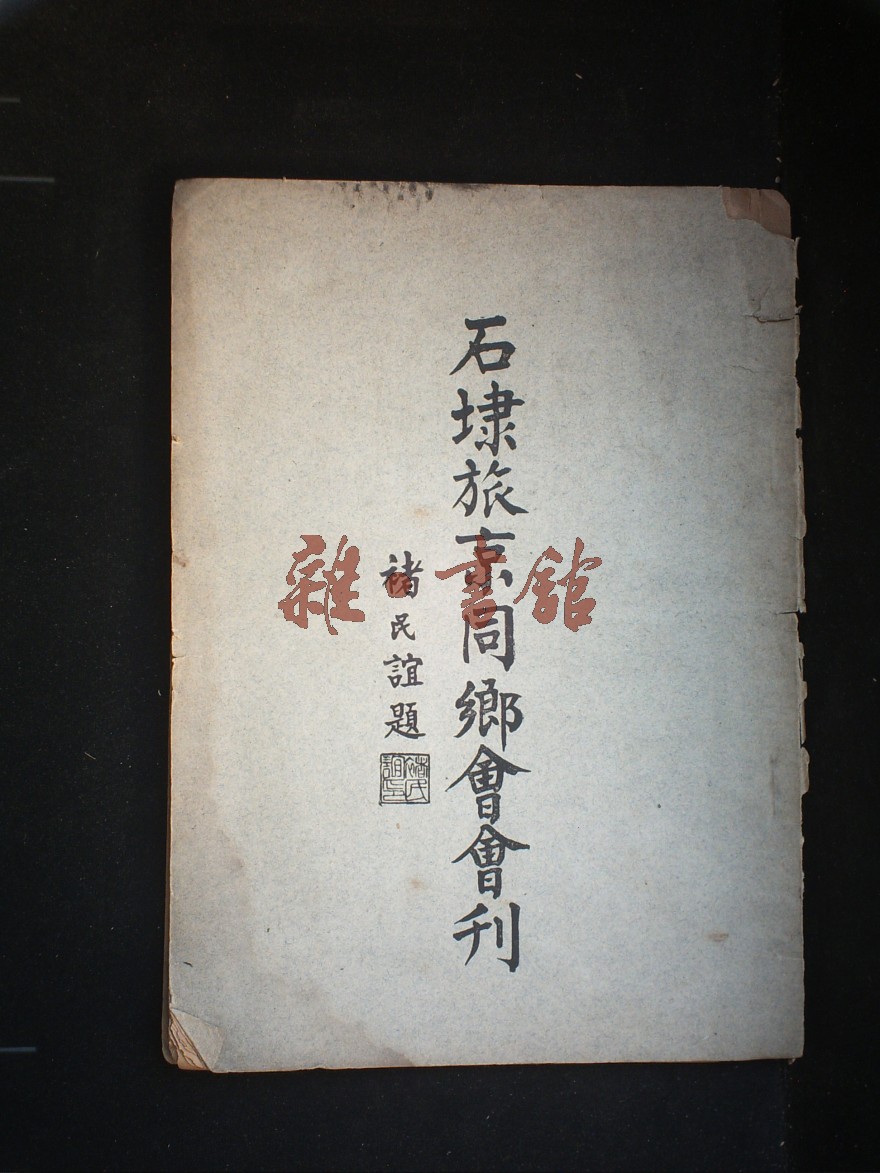 石埭旅京同鄉會會刊
褚民誼題
雜·書館